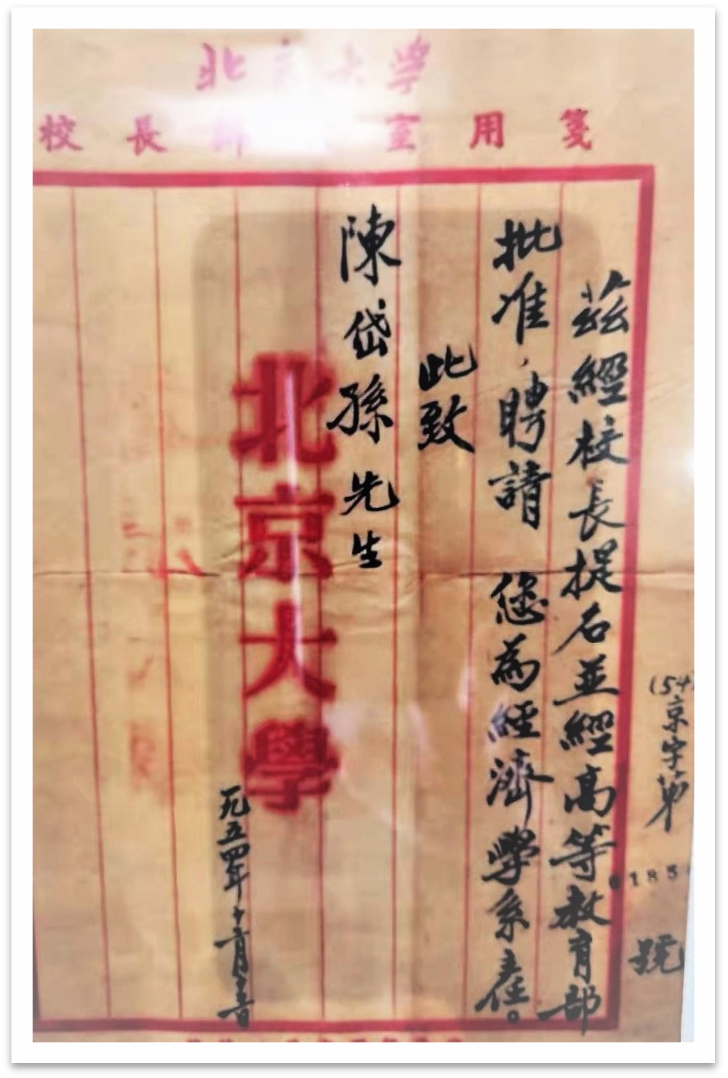 北京大學
校長辦公室用箋
(54)京字第
號
茲經校長提名並經高等教育部
批准，聘請 您為經濟學系主任。
此致
陳岱孫先生
北京大學
一九五四年十一月